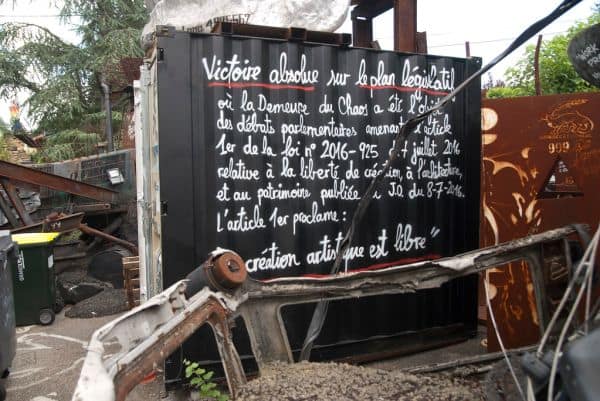 Victoire absolue sur le plan législatif
où la Demeure du Chaos a été l'objet
des débats parlementaires amenant l'article
1er de la loi n° 2016-925 7 juillet 2016
relative à la liberté de création à l'architecture,
et au patrimoine publiée J.O. du 8-7-2016.
L'article 1er proclame :
création artistique est libre"
999